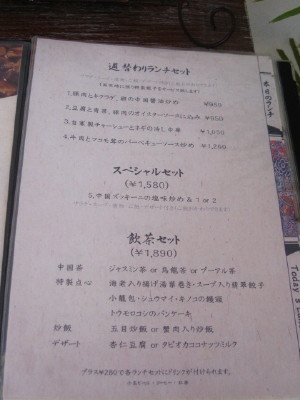 週替わりランチセット
1.豚肉とキクラゲ、卵の中国醤油炒め ¥950
2.豆腐と青菜、豚肉のオイスターソース煮込み ¥950
3.自家製チャーシューとネギの冷し中華 ¥1,050
4.牛肉とマコモ茸のバーベキューソース炒め ¥1,200
スペシャルセット
(¥1,580)
5.中国ズッキーニの塩味炒め & 1 or 2
飲茶セット
(¥1,890)
中国茶 ジャスミン茶 or 烏龍茶 or プーアル茶
特製点心 海老入り揚げ湯葉巻き・スープ入り翡翠餃子
小龍包・シュウマイ・キノコの饅頭
トウモロコシのパンケーキ
炒飯 五目炒飯 or 蟹肉入り炒飯
デザート 杏仁豆腐 or タピオカココナッツミルク
プラス¥280で各ランチセットにドリンクが付けられます。
本日のランチ
Today's